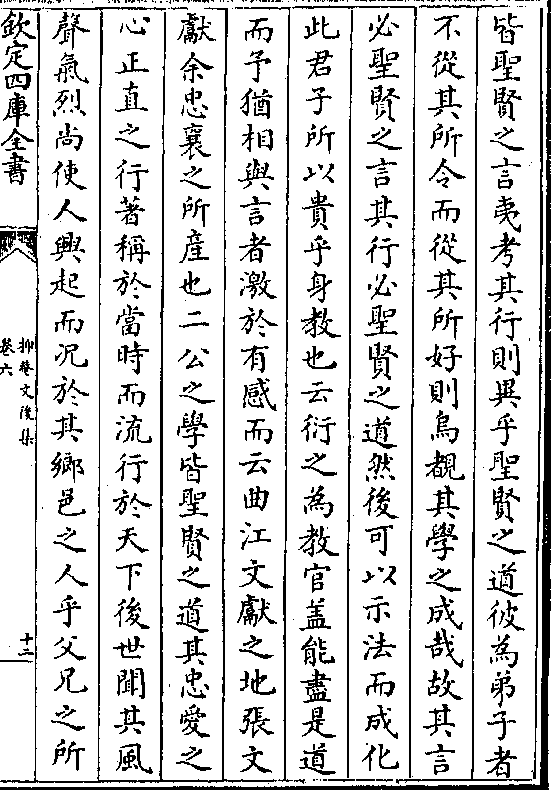 皆聖賢之言夷考其行則異乎聖賢之道彼為弟子者
不從其所令而從其所好則烏覩其學之成哉故其言
必聖賢之言其行必聖賢之道然後可以示法而成化
此君子所以貴乎身教也云衍之為教官盖能盡是道
而予猶相與言者激於有感而云曲江文獻之地張文
獻余忠襄之所産也二公之學皆聖賢之道其忠愛之
心正直之行著稱於當時而流行於天下後世聞其風
聲氣烈尚使人興起而况於其鄉邑之人乎父兄之所
欽定四庫全書
抑菴文後集
卷六
十二